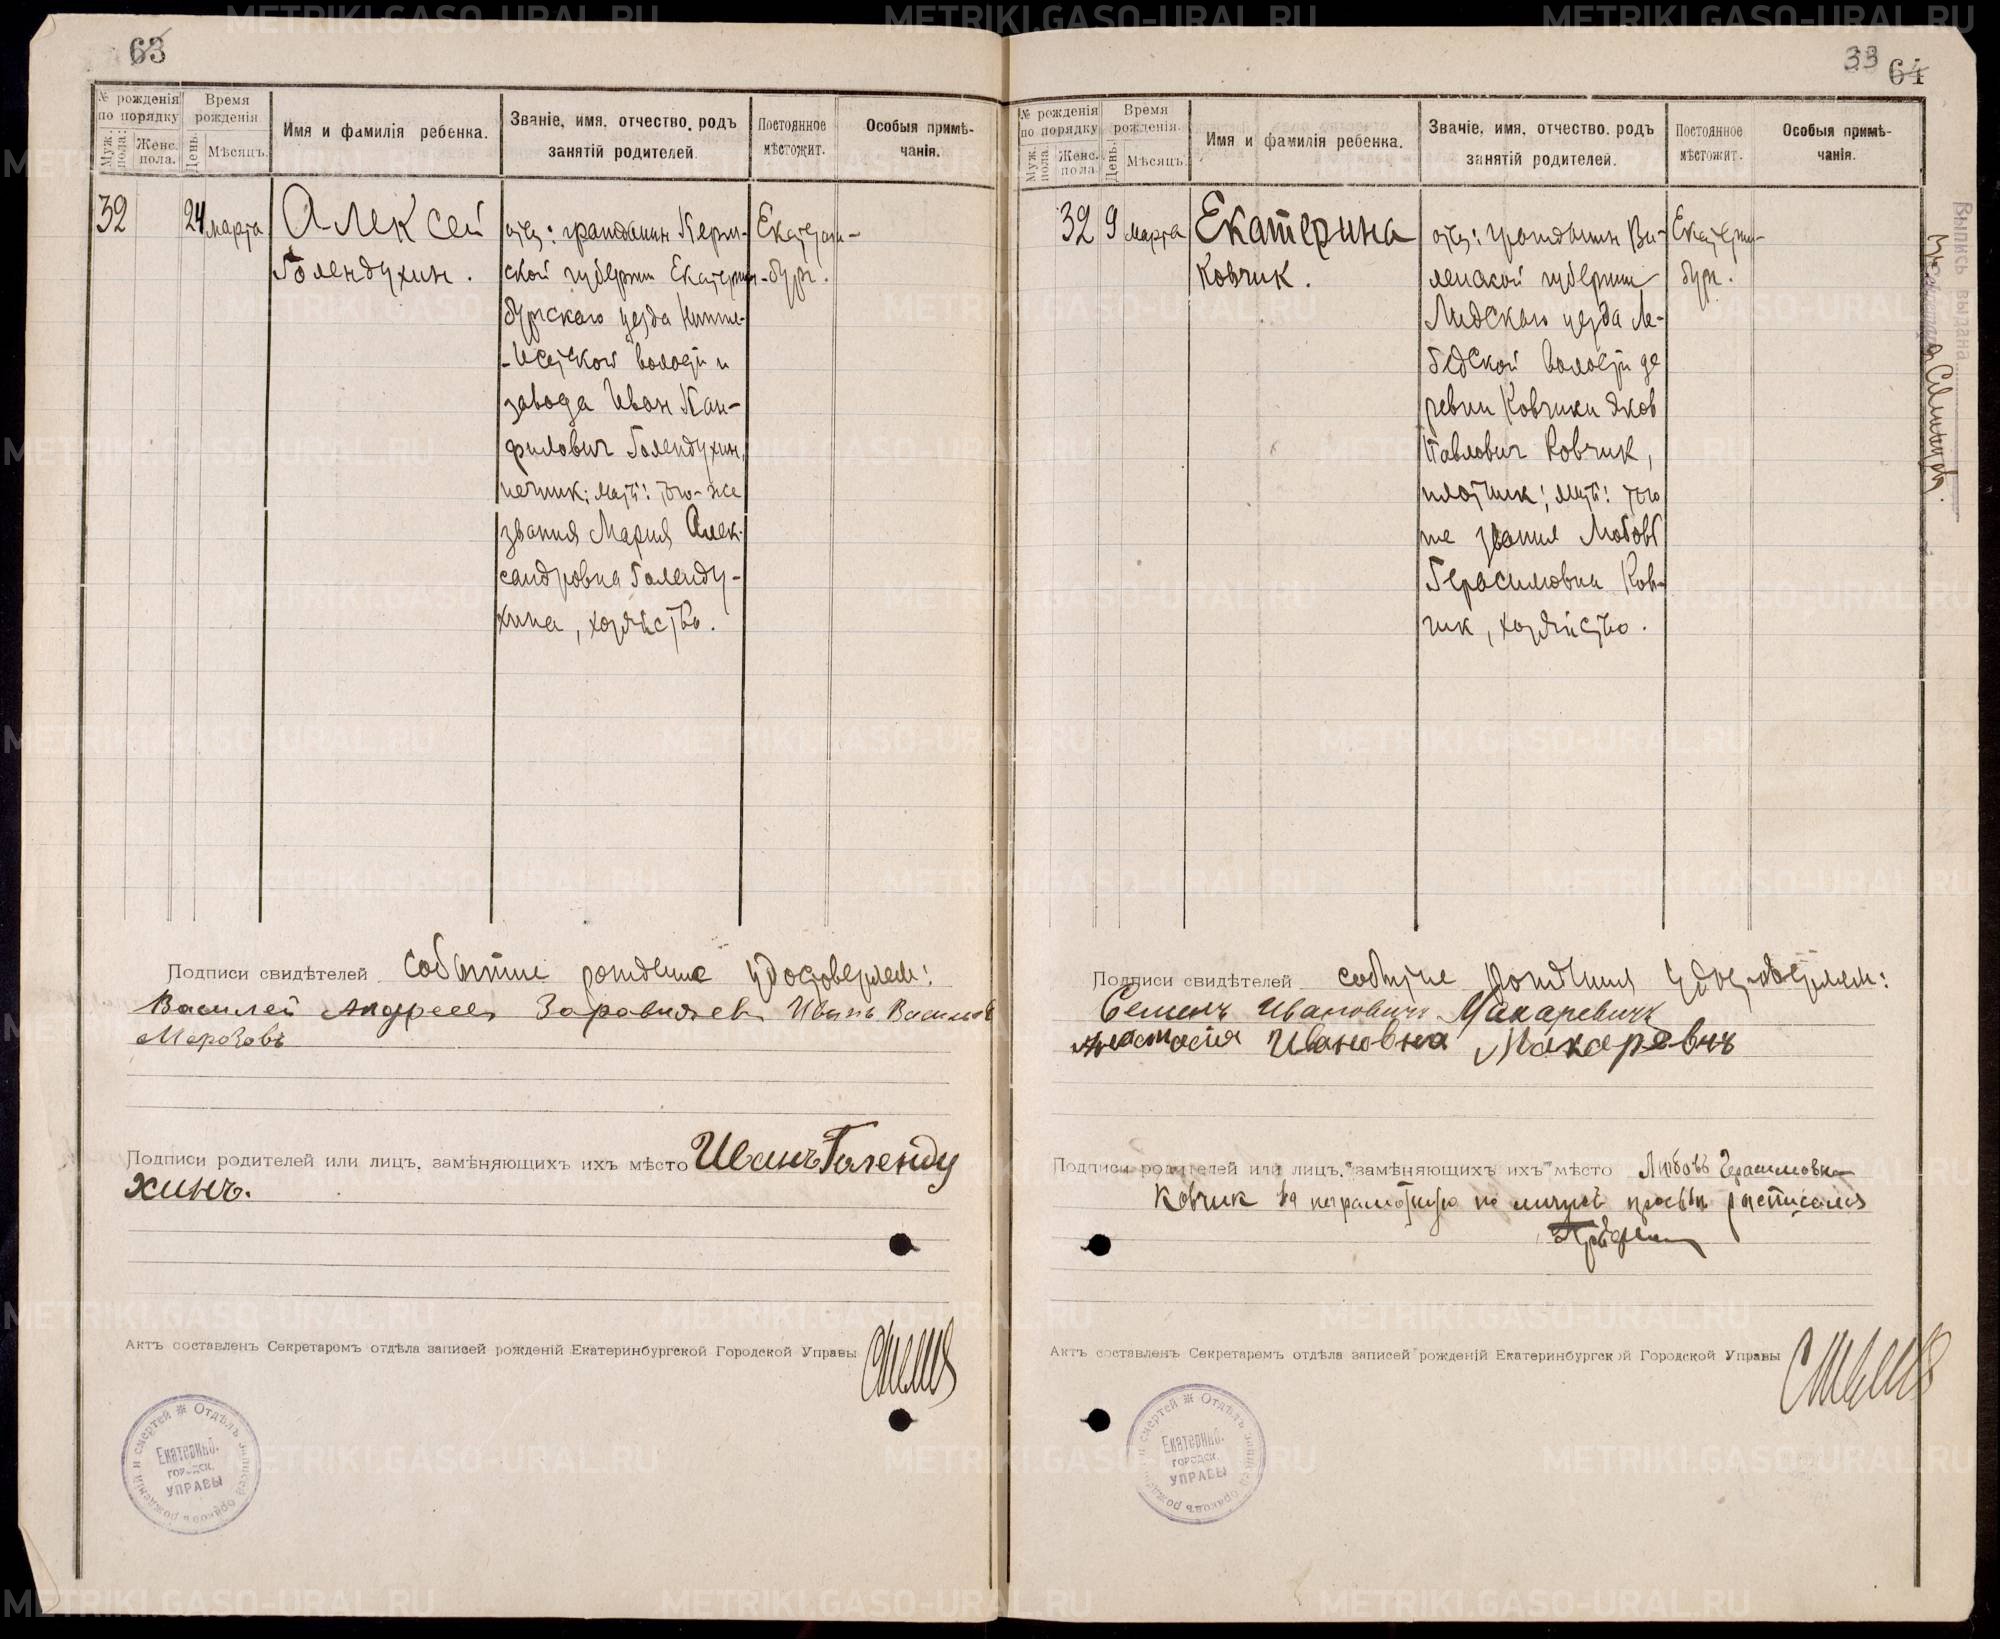 63
№ рожденія по порядку
Муж. пола.
Женс. пола.
Время рожденія
День.
Мѣсяцъ.
Имя и фамилія ребенка.
Званіе, имя, отчество, родъ
занятій родителей.
Постоянное
мѣстожит.
Особыя примѣ-
чанія.
32 24 марта
Алексей
Голендухин.
отец: гражданин Перм-
ской губернии Екатерин-
бургскаго уезда Нижне-
-Исетской волости и
завода Иван Пан-
филович Голендухин,
печник; мать: того-же
звания Мария Алек-
сандровна Голенду-
хина, хозяйство.
Екатерин-
бург.
Подписи свидѣтелей событие рождения удостоверяем:
Василей Андреев Иванъ
Подписи родителей или лицъ, замѣняющихъ ихъ мѣсто Иванъ Голенду
хинъ.
Актъ составленъ Секретаремъ отдѣла записей рожденій Екатеринбургской Городской Управы
Отдѣлъ записей браковъ рожденій и смертей
Екатеринб.
городск.
УПРАВЫ
33
64
№ рожденія по порядку
Муж. пола.
Женс. пола
Время рожденія.
День.
Мѣсяцъ.
Имя и фамилія ребенка.
Званіе, имя, отчество, родъ
занятій родителей.
Постоянное
мѣстожит.
Особыя примѣ-
чанія.
32 9 марта
Екатерина
Ковчик.
отец: гражданин Ви-
ленской губернии
Лидскаго уезда Ле-
бедской волости де
ревни Ковчики Яков
Павлович Ковчик,
плотник; мать: того
же звания Любовь
Герасимовна Ков-
чик, хозяйство.
Екатерин-
бург.
Выпись выдана
Подписи свидѣтелей событие рождения удостоверяем:
Семенъ Ивановичъ Макаревичъ
Анастасия Ивановна Макаревичъ
Подписи родителей или лицъ, замѣняющихъ ихъ мѣсто Любовь Герасимовна
Ковчик за неграмотную по личной просьбе расписался
Актъ составленъ Секретаремъ отдѣла записей рожденій Екатеринбургской Городской Управы
Отдѣлъ записей браковъ рожденій и смертей
Екатеринб.
городск.
УПРАВЫ
METRIKI.GASO-URAL.RU